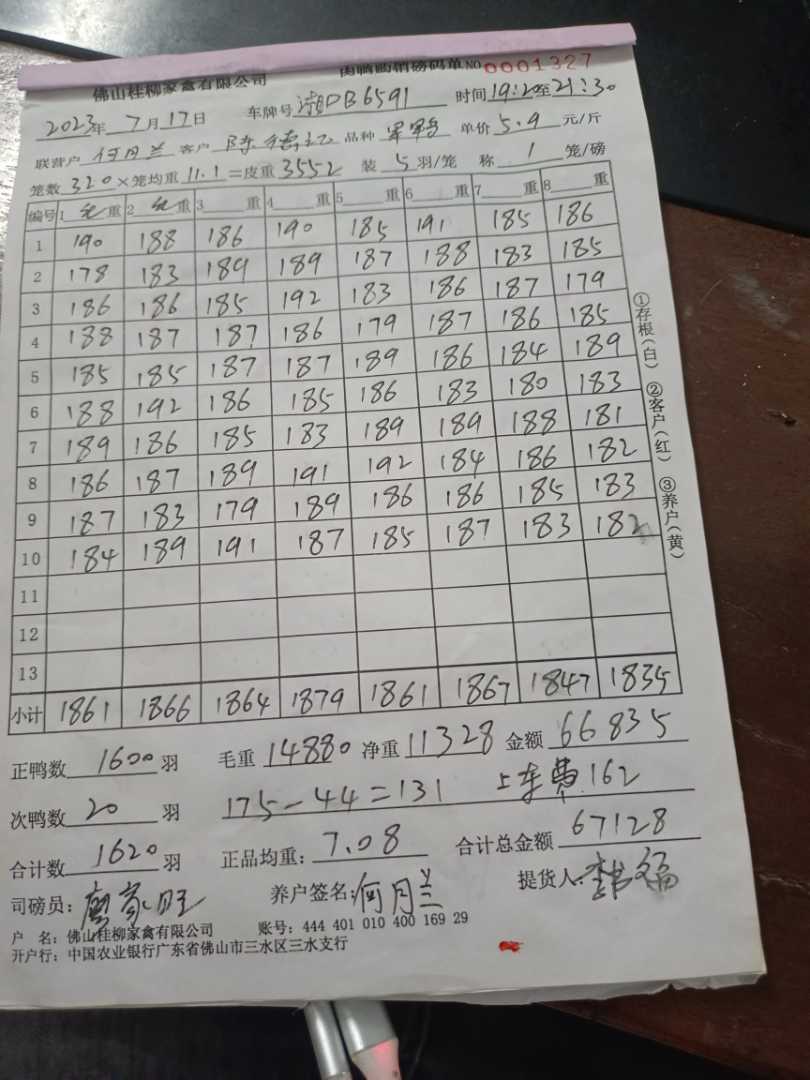 佛山桂柳家禽有限公司 肉鸭购销磅码单 NO 0001327
2023年 7月17日 车牌号 湘DB6591 时间 19:20至21:30
联营户 何月兰 客户 陈德 品种 单价 5.9 元/斤
笼数 320 ×笼均重 11.1 =皮重 3552 装 5 羽/笼 称 1 笼/磅
编号 1 重 2 重 3 重 4 重 5 重 6 重 7 重 8 重
1 190 188 186 190 185 191 185 186
2 178 183 189 189 187 188 183 185
3 186 186 185 192 183 186 187 179
4 188 187 187 186 179 187 186 185
5 185 185 187 187 189 186 184 189
6 188 192 186 185 186 183 180 183
7 189 186 185 183 189 189 188 181
8 186 187 189 191 192 184 186 182
9 187 183 179 189 186 186 185 183
10 184 189 191 187 185 187 183 182
11
12
13
小计 1861 1866 1864 1879 1861 1867 1847 1835
正鸭数 1600 羽 毛重 14880 净重 11328 金额 66835
次鸭数 20 羽 175-44=131 上车费 162
合计数 1620 羽 正品均重: 7.08 合计总金额 67128
司磅员: 廖家旺 养户签名: 何月兰 提货人:
户 名: 佛山桂柳家禽有限公司 账号: 444 401 010 400 169 29
开户行: 中国农业银行广东省佛山市三水区三水支行
①存根(白) ②客户(红) ③养户(黄)